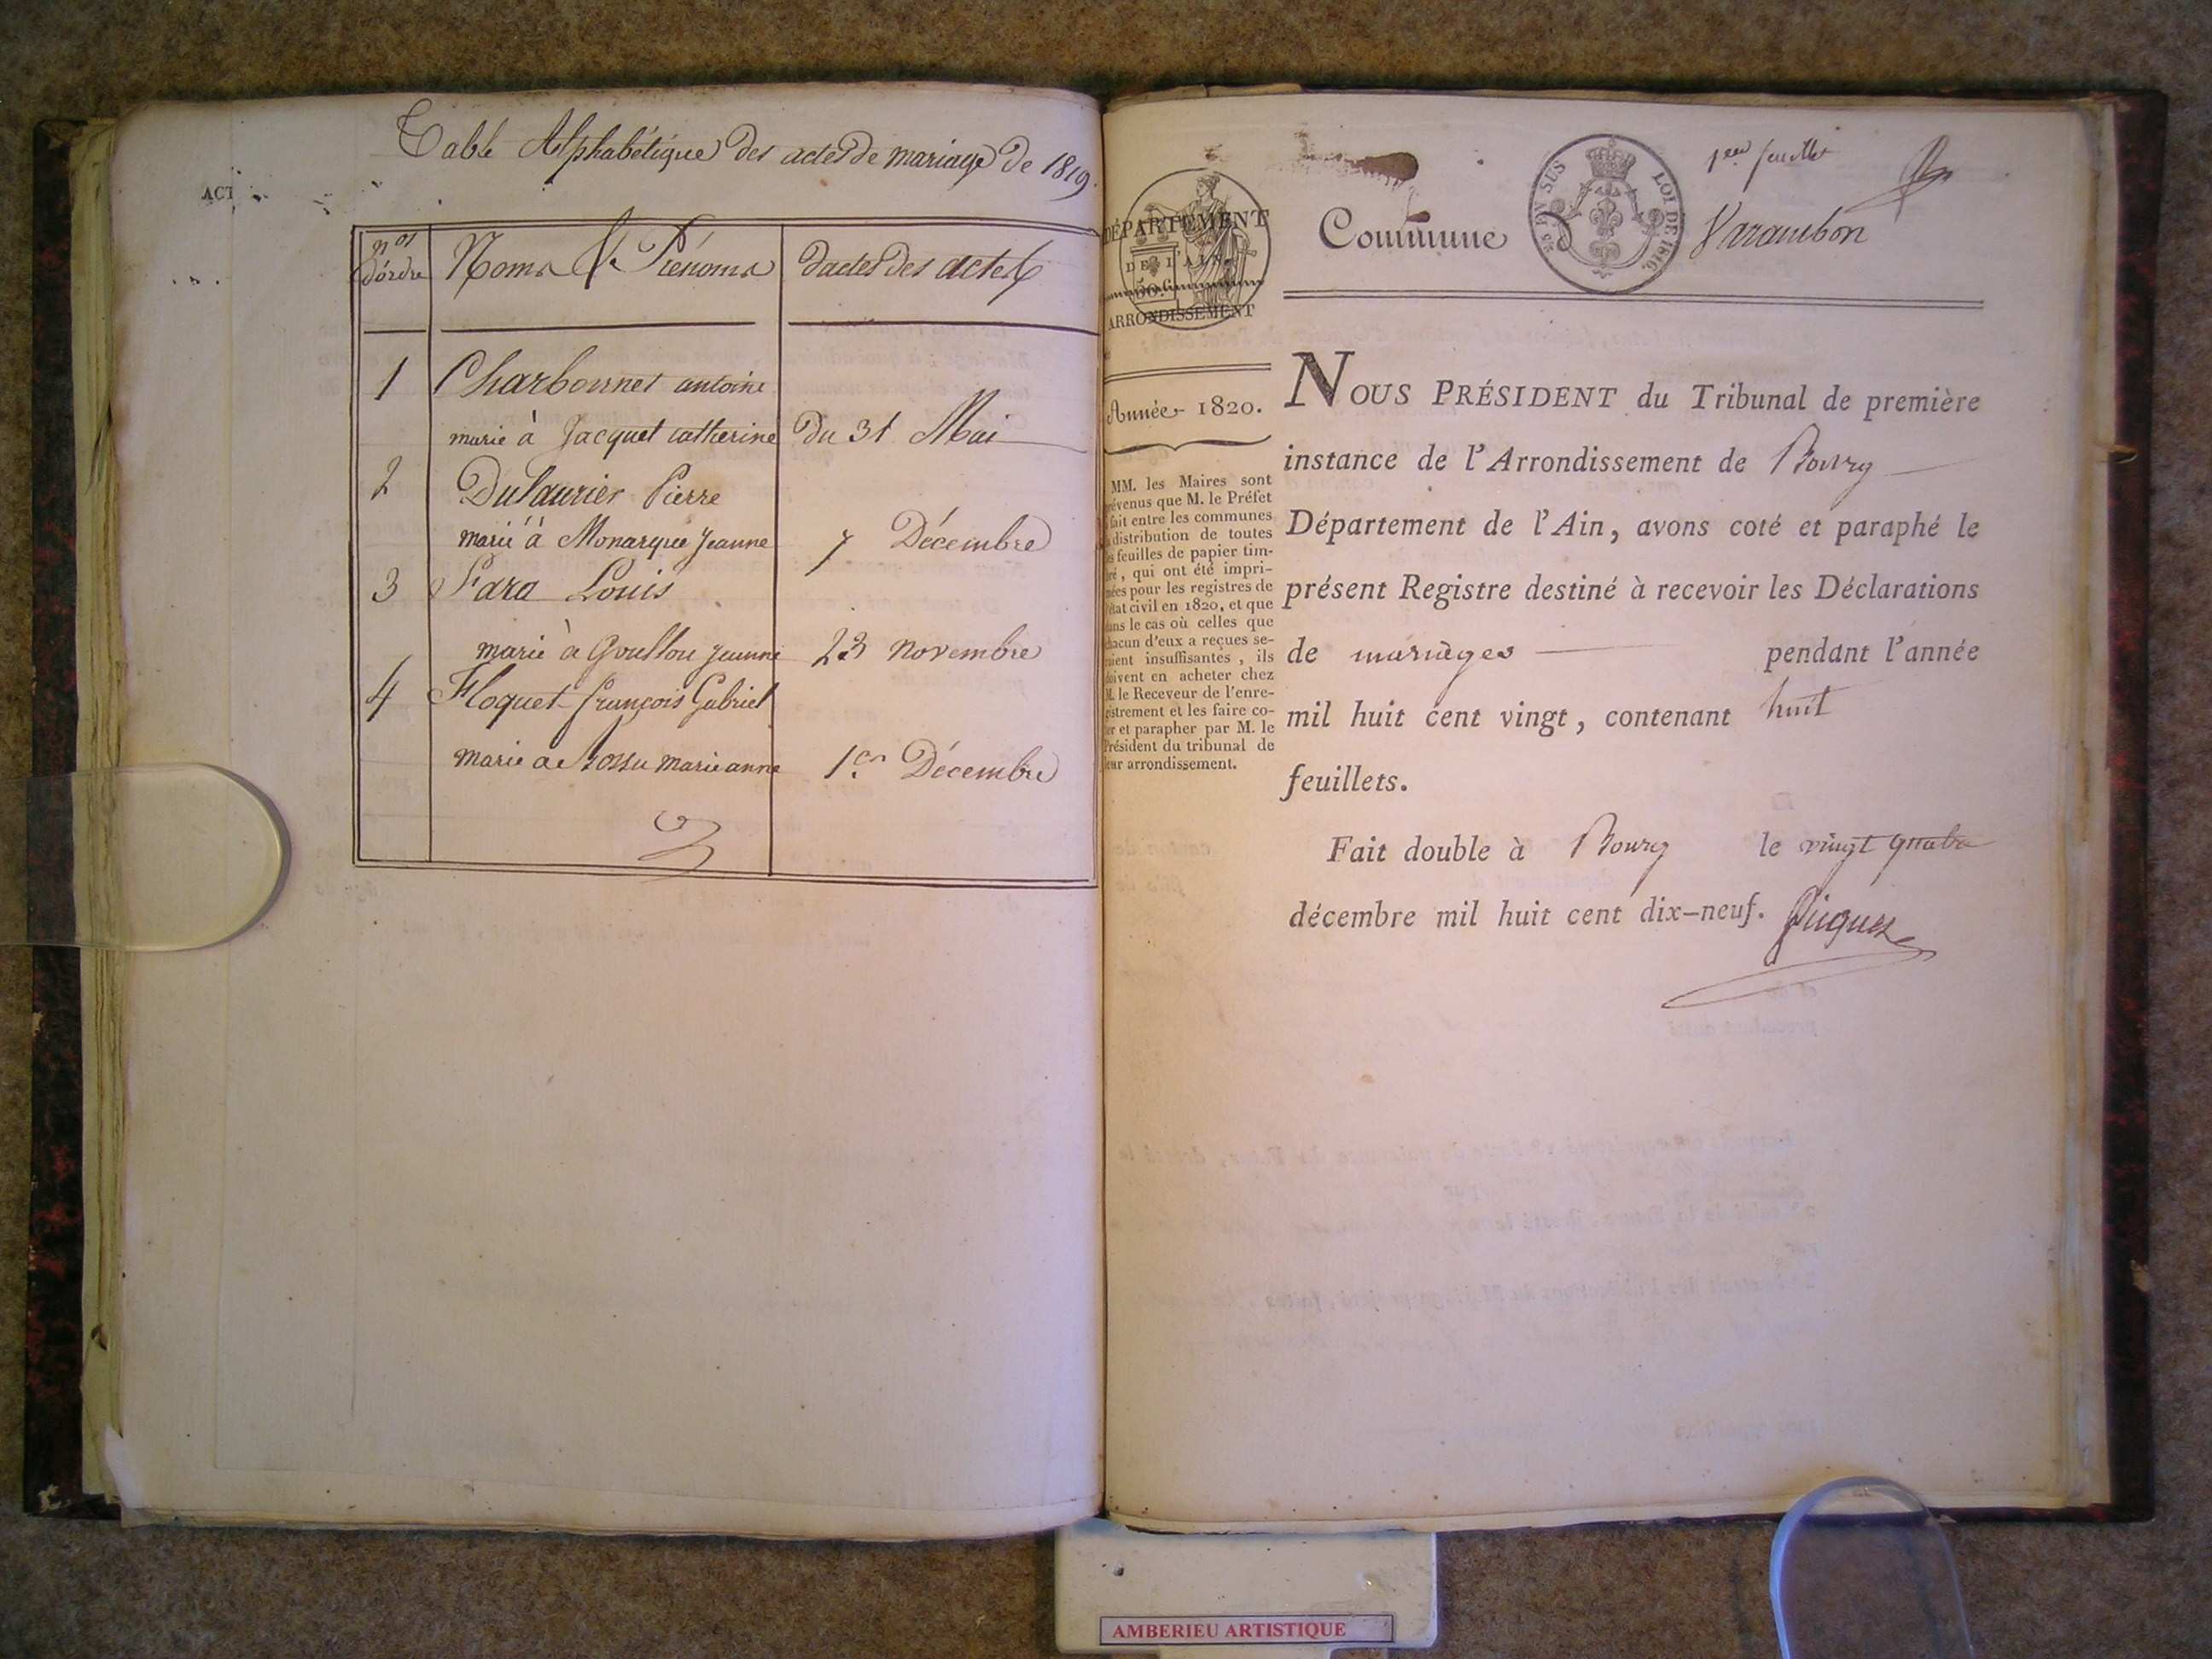 Table Alphabétique des actes de mariage de 1819.
ACT
nos d'ordre
Noms & Prénoms
dactes des actes
1 Charbonnet antoine
marié à Jacquet catherine du 31 Mai
2 Dulaurier Pierre
marié à Monarque Jeanne 7 Décembre
3 Fara Louis
marié à Goullou Jeanne 23 novembre
4 Floquet françois Gabriel
marié a Bossu marie anne 1er Décembre
1er feuillet
DÉPARTEMENT
DE L'AIN.
ARRONDISSEMENT
Commune de Varambon
EN SUS
LOI DE 1816.
Année 1820.
MM. les Maires sont
prévenus que M. le Préfet
a fait entre les communes
la distribution de toutes
les feuilles de papier tim-
bré, qui ont été impri-
mées pour les registres de
l'état civil en 1820, et que
dans le cas où celles que
chacun d'eux a reçues se-
raient insuffisantes, ils
doivent en acheter chez
M. le Receveur de l'enre-
gistrement et les faire co-
ter et parapher par M. le
Président du tribunal de
leur arrondissement.
NOUS PRÉSIDENT du Tribunal de première
instance de l'Arrondissement de Bourg
Département de l'Ain, avons coté et paraphé le
présent Registre destiné à recevoir les Déclarations
de mariages pendant l'année
mil huit cent vingt, contenant huit
feuillets.
Fait double à Bourg le vingt quatre
décembre mil huit cent dix-neuf.
AMBERIEU ARTISTIQUE